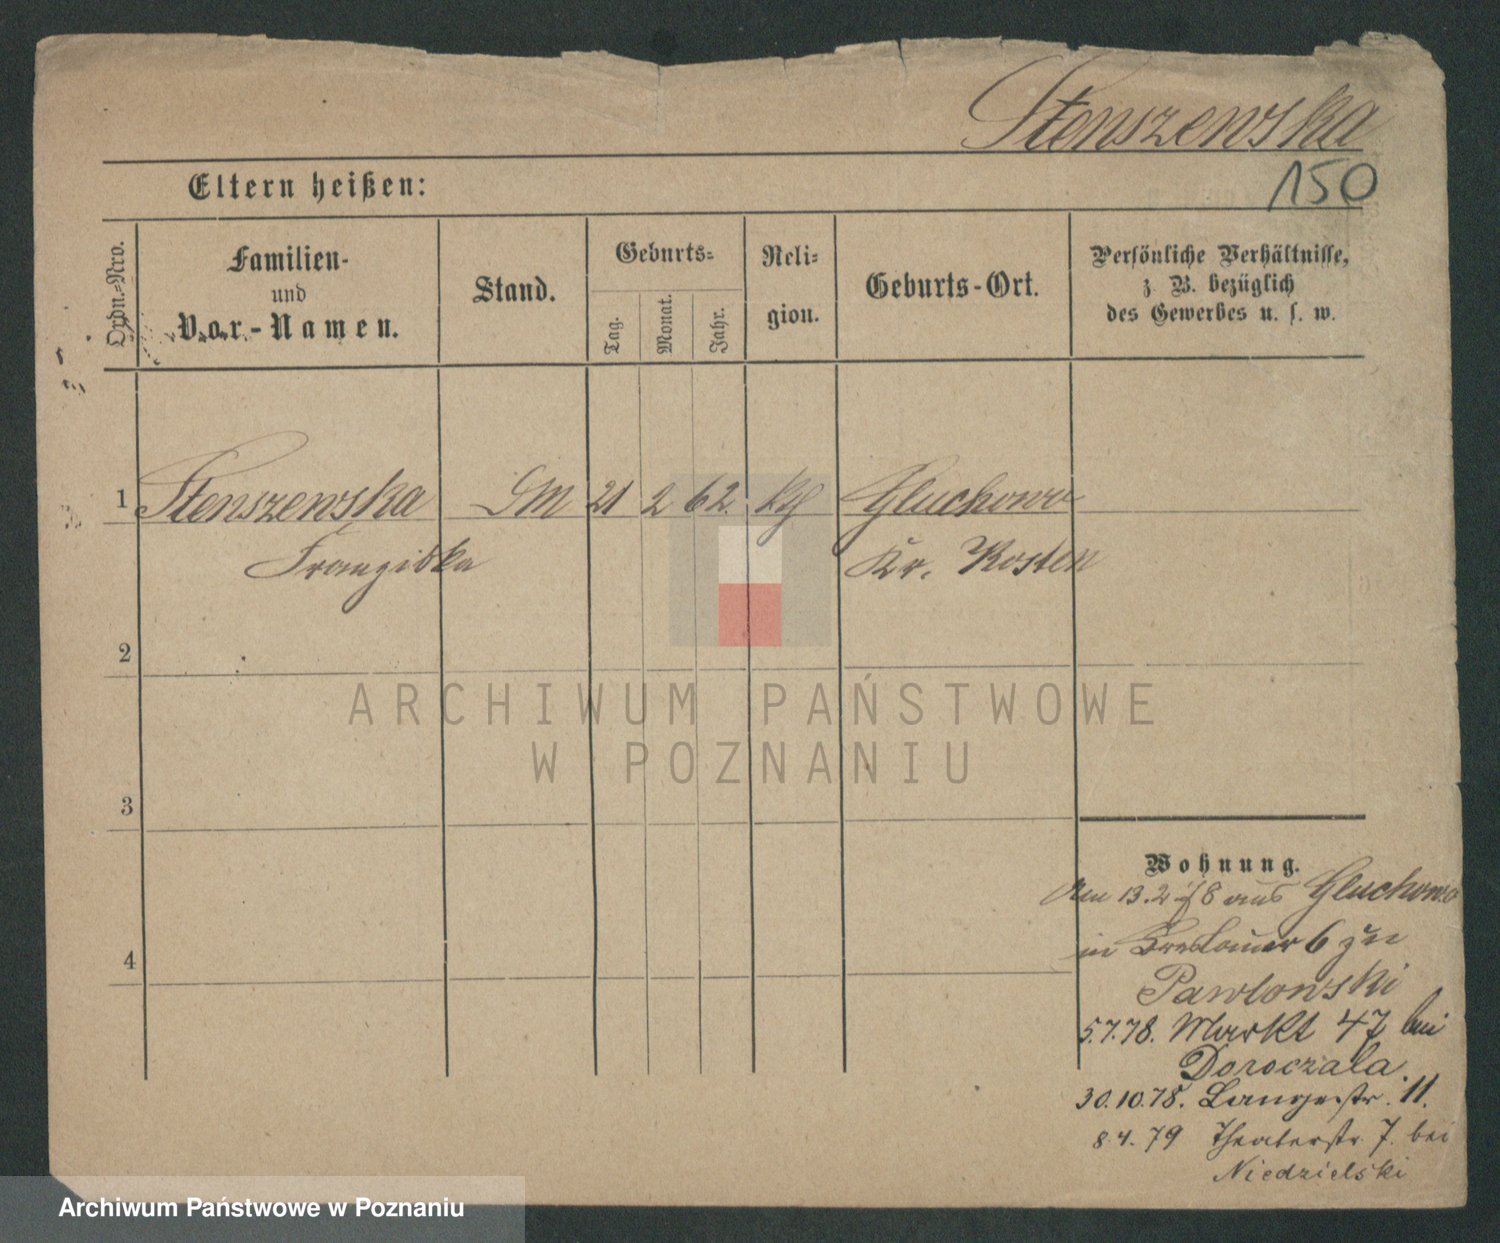 Stenszewska
150
Eltern heißen:
Ordn.-Nro.
Familien-
und
Vor-Namen.
Stand.
Geburts-
Tag.
Monat.
Jahr.
Reli-
gion.
Geburts-Ort.
Persönliche Verhältnisse,
z. B. bezüglich
des Gewerbes u. s. w.
1 Stenszewska DM 21 2 62. kth Gluchowo
Franziska Kr. Kosten
2
3
4
Wohnung.
Am 13.2.78 aus Gluchowo
in Breslauer 6 zu
Pawlowski
5.7.78. Markt 47 bei
Doroczala.
30.10.78. Langestr. 11.
8.4.79 Theaterstr. 7. bei
Niedzielski
ARCHIWUM PAŃSTWOWE
W POZNANIU
Archiwum Państwowe w Poznaniu